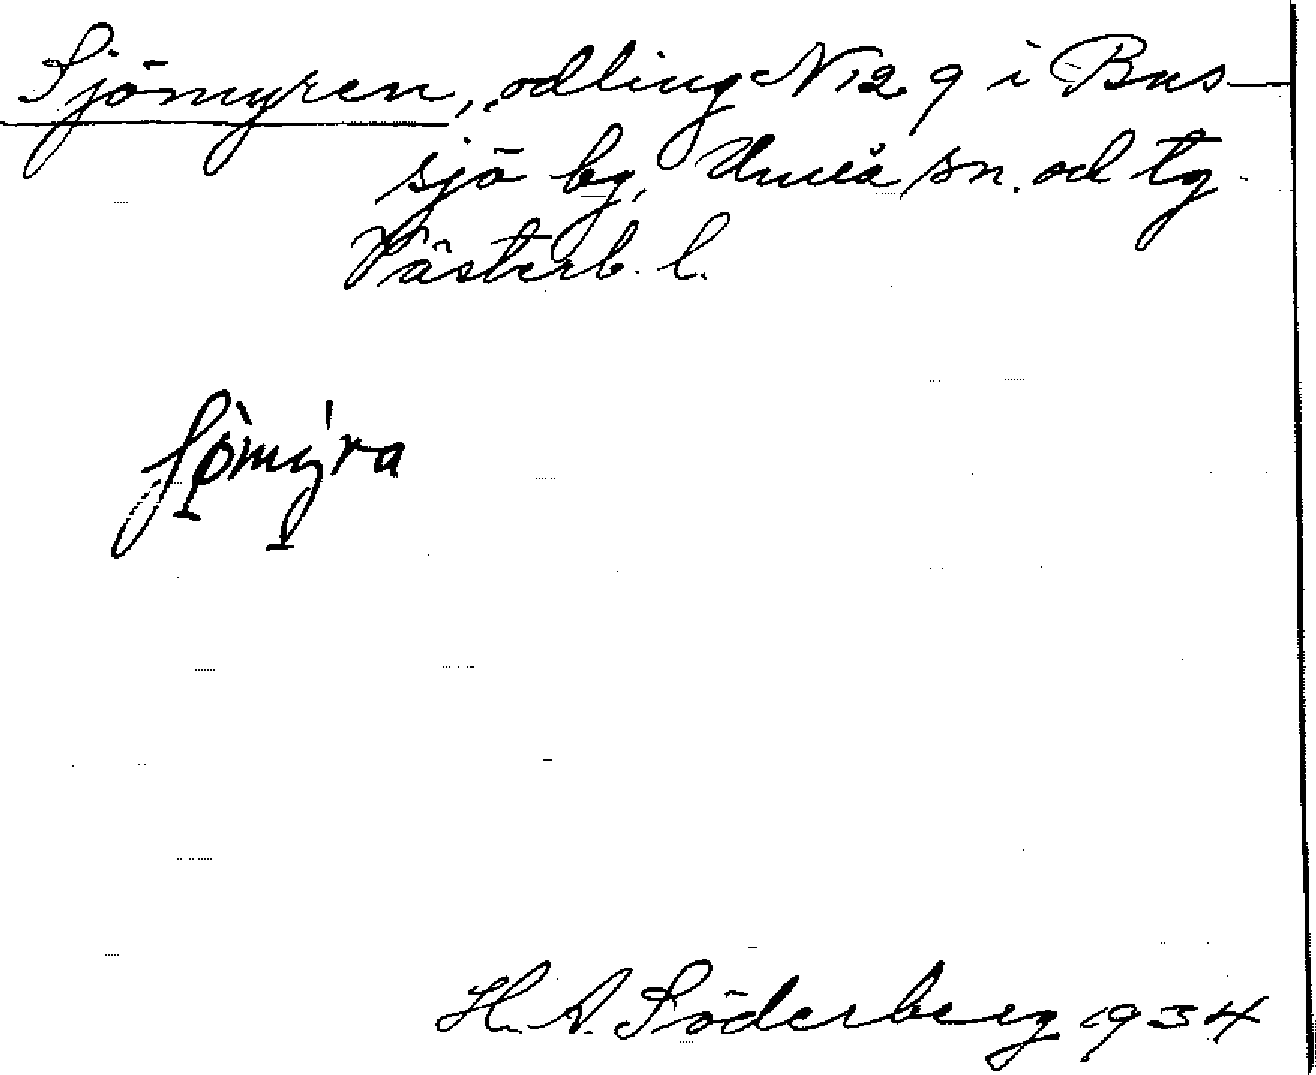 Sjömyren, odling N12 9 i Bus-
sjö by, Umeå sn. och tg
Västerb. l.
ʃömýra
H. A. Söderberg 1934